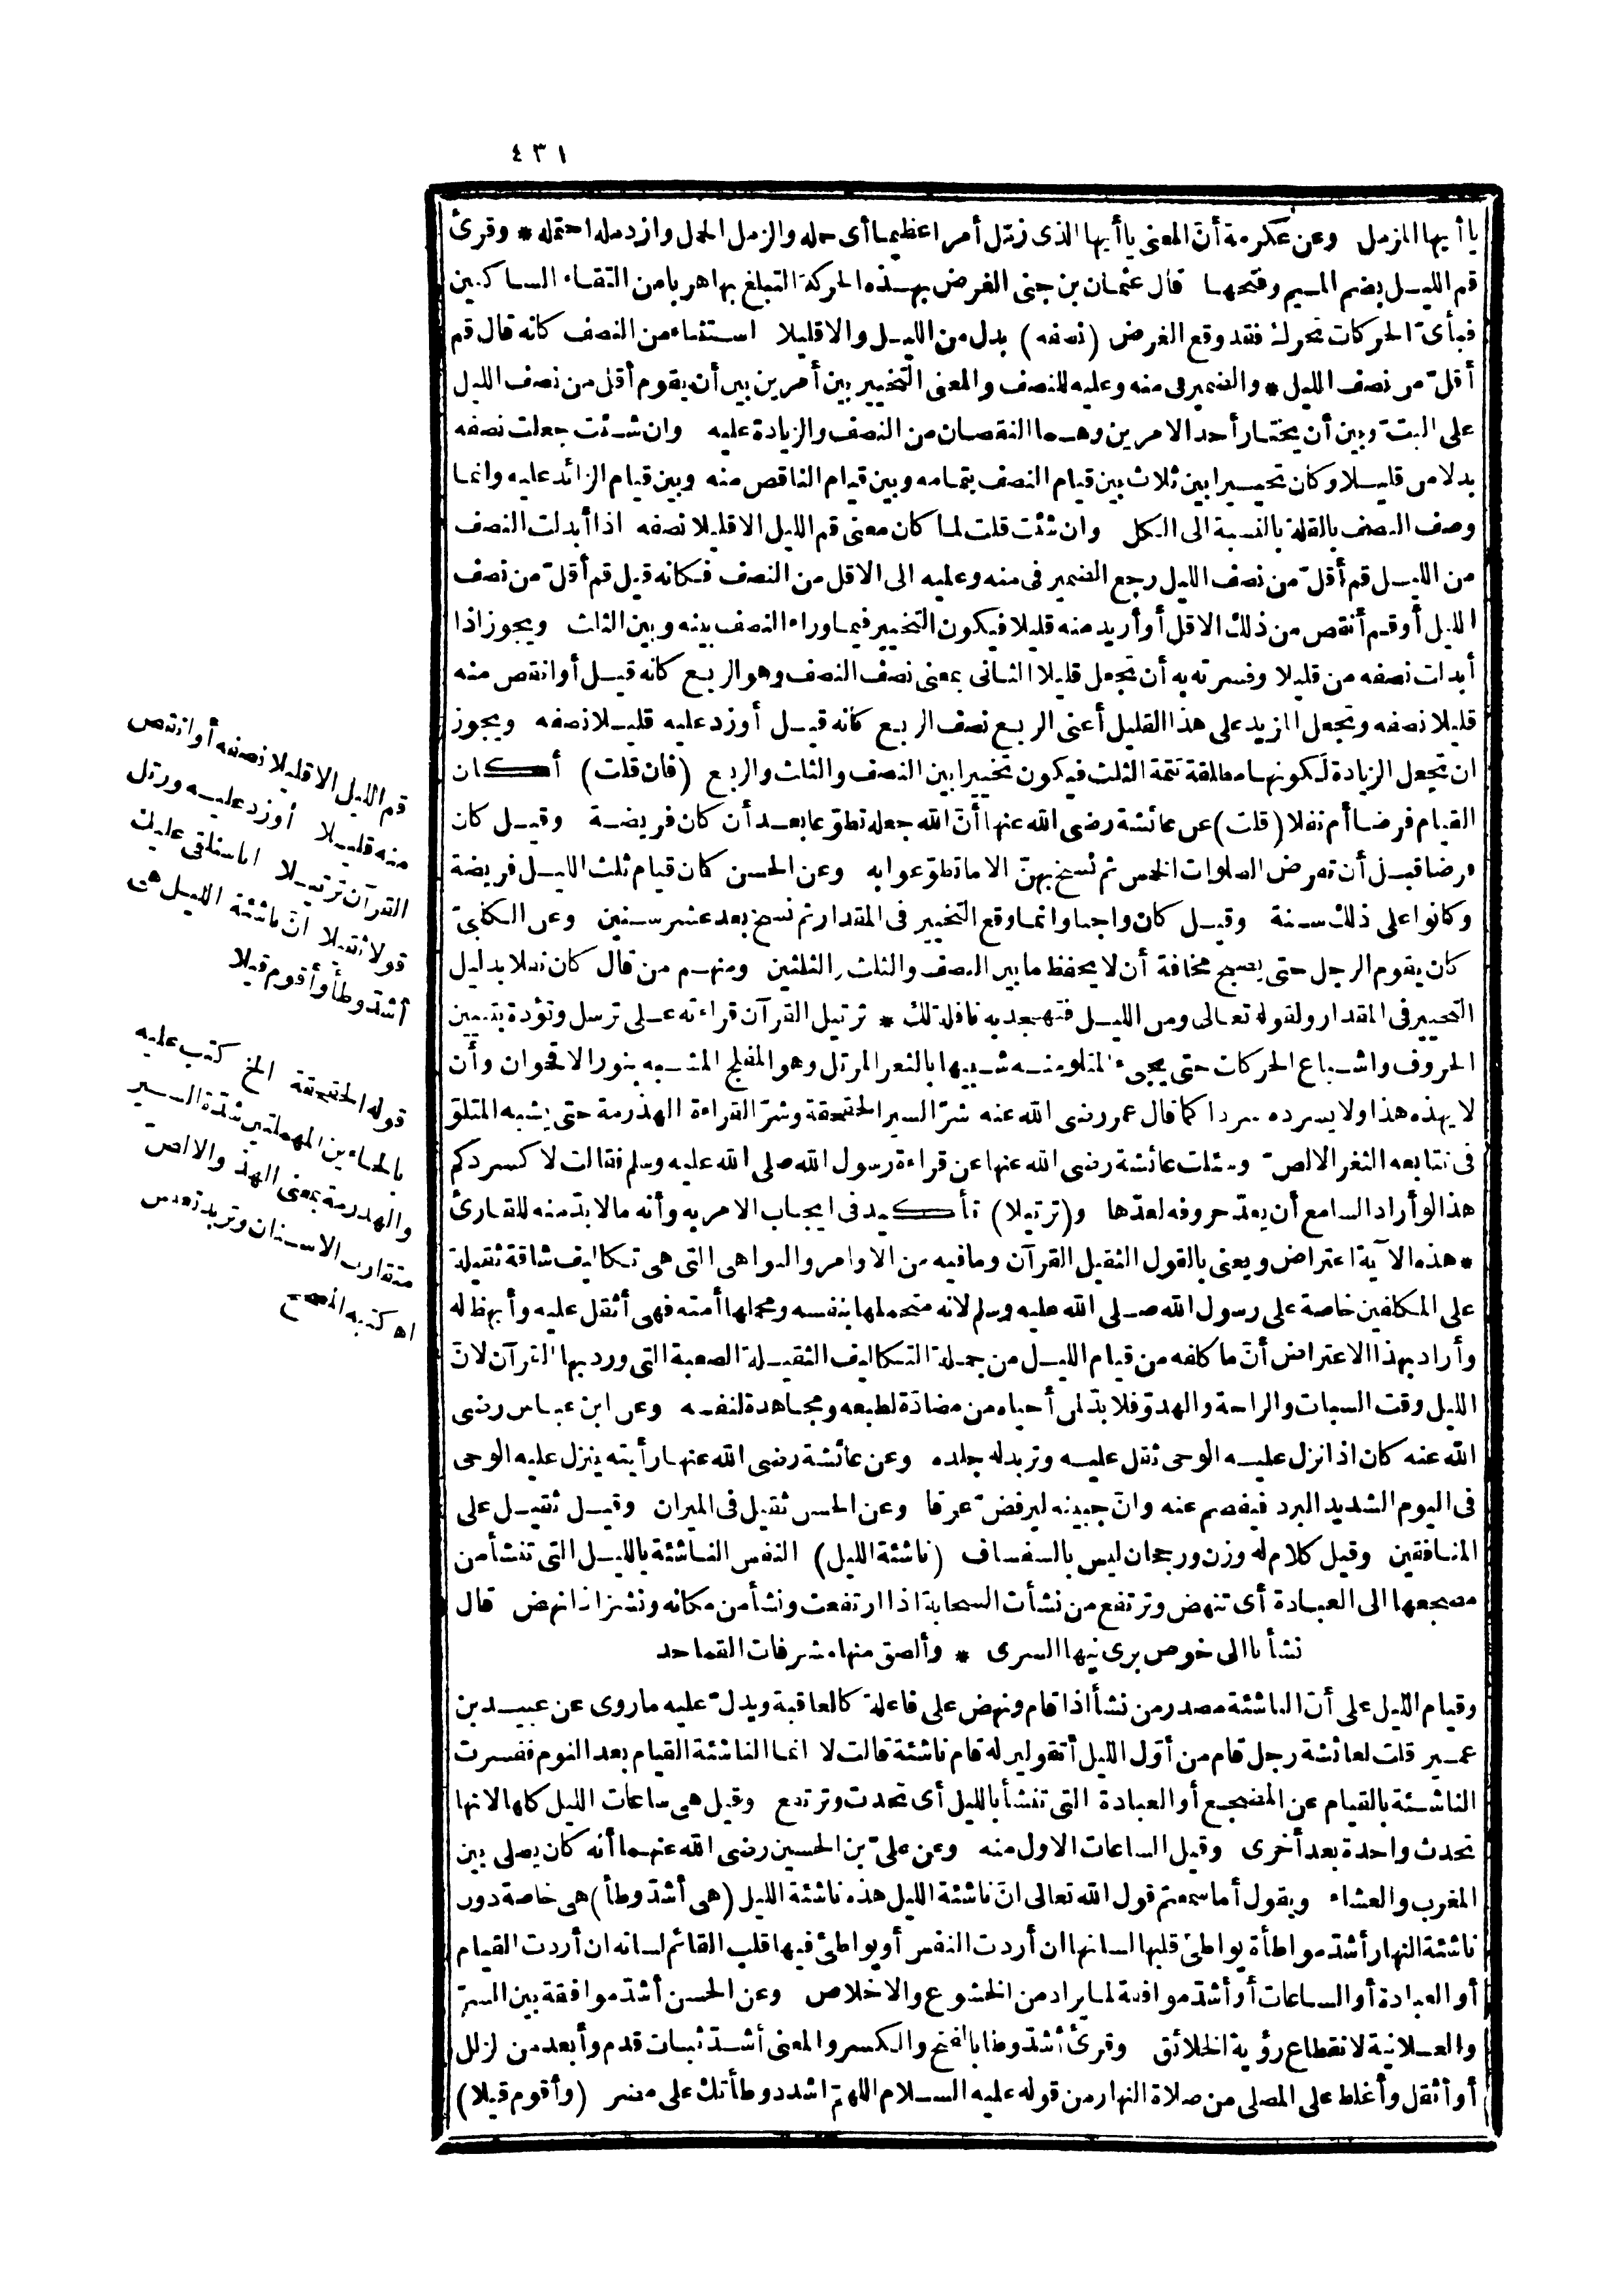 ٤٣١
يا أيها المزمل وعن عكرمة أنّ المعنى يا أيها الذى زمّل أمرا عظيما أى حمله والزمل الحمل وازدمله احتمله * وقرئ
قم الليل بضم الميم وفتحها قال عثمان بن جنى الغرض بهذه الحركة التبلغ بها هربا من التقاء الساكنين
فبأىّ الحركات تحرك فقد وقع الغرض (نصفه) بدل من الليل والا قليلا استثناء من النصف كانه قال قم
أقلّ من نصف الليل * والضمير فى منه وعليه للنصف والمعنى التخيير بين أمرين بين أن يقوم أقل من نصف الليل
على البتّ وبين أن يختار أحد الامرين وهما النقصان من النصف والزيادة عليه وان شئت جعلت نصفه
بدلا من قليلا وكان تخييرا بين ثلاث بين قيام النصف بتمامه وبين قيام الناقص منه وبين قيام الزائد عليه وانما
وصف النصف بالقلة بالنسبة الى الكل وان شئت قلت لما كان معنى قم الليل الا قليلا نصفه اذا أبدلت النصف
من الليل قم أقلّ من نصف الليل رجع الضمير فى منه وعليه الى الاقل من النصف فكانه قيل قم أقلّ من نصف
الليل أو قم أنقص من ذلك الاقل أو أزيد منه قليلا فيكون التخيير فيما وراء النصف بينه وبين الثلث ويجوز اذا
أبدلت نصفه من قليلا وفسرته به أن تجعل قليلا الثانى بمعنى نصف النصف وهو الربع كانه قيل أو انقص منه
قليلا نصفه وتجعل المزيد على هذا القليل أعنى الربع نصف الربع كانه قيل أو زد عليه قليلا نصفه ويجوز
ان تجعل الزيادة لكونها مطلقة تتمة الثلث فيكون تخييرا بين النصف والثلث والربع (فان قلت) أكان
القيام فرضا أم نفلا (قلت) عن عائشة رضى الله عنها أنّ الله جعله تطوّعا بعد أن كان فريضة وقيل كان
فرضا قبل أن تفرض الصلوات الخمس ثم نسخ بهنّ الا ما تطوّعوا به وعن الحسن كان قيام ثلث الليل فريضة
وكانوا على ذلك سنة وقيل كان واجبا وانما وقع التخيير فى المقدار ثم نسخ بعد عشر سنين وعن الكلبىّ
كان يقوم الرجل حتى يصبح مخافة أن لا يحفظ ما بين النصف والثلث والثلثين ومنهم من قال كان نفلا بدليل
التخيير فى المقدار ولقوله تعالى ومن الليل فتهجد به نافلة لك * ترتيل القرآن قراءته على ترسل وتؤدة بتبيين
الحروف واشباع الحركات حتى يجىء المتلو منه شبيها بالثغر المرتل وهو المفلج المشبه بنور الاقحوان وأن
لا يهذه هذا ولا يسرده سردا كما قال عمر رضى الله عنه شرّ السير الحقحقة وشرّ القراءة الهذرمة حتى يشبه المتلوّ
فى تتابعه الثغر الالصّ وسئلت عائشة رضى الله عنها عن قراءة رسول الله صلى الله عليه وسلم فقالت لا كسردكم
هذا لو أراد السامع أن يعدّ حروفه لعدّها و(ترتيلا) تأكيد فى ايجاب الامر به وأنه ما لا بدّ منه للقارئ
* هذه الآية اعتراض ويعنى بالقول الثقيل القرآن وما فيه من الاوامر والنواهى التى هى تكاليف شاقة ثقيلة
على المكلفين خاصة على رسول الله صلى الله عليه وسلم لانه متحملها بنفسه ومحملها أمته فهى أثقل عليه وأبهظ له
وأراد بهذا الاعتراض أنّ ما كلفه من قيام الليل من جملة التكاليف الثقيلة الصعبة التى ورد بها القرآن لانّ
الليل وقت السبات والراحة والهدوّ فلا بدّ لمن أحياه من مضادّة لطبعه ومجاهدة لنفسه وعن ابن عباس رضى
الله عنه كان اذا نزل عليه الوحى ثقل عليه وتربد له جلده وعن عائشة رضى الله عنها رأيته ينزل عليه الوحى
فى اليوم الشديد البرد فيفصم عنه وانّ جبينه ليرفضّ عرقا وعن الحسن ثقيل فى الميزان وقيل ثقيل على
المنافقين وقيل كلام له وزن ورجحان ليس بالسفساف (ناشئة الليل) النفس الناشئة بالليل التى تنشأ من
مضجعها الى العبادة أى تنهض وترتفع من نشأت السحابة اذا ارتفعت ونشأ من مكانه ونشز اذا نهض قال
نشأنا الى خوص برى نيها السرى * وألصق منها مشرفات القماحد
وقيام الليل على أنّ الناشئة مصدر من نشأ اذا قام ونهض على فاعلة كالعاقبة ويدلّ عليه ما روى عن عبيد بن
عمير قلت لعائشة رجل قام من أوّل الليل أتقولين له قام ناشئة قالت لا انما الناشئة القيام بعد النوم ففسرت
الناشئة بالقيام عن المضجع أو العبادة التى تنشأ بالليل أى تحدث وترتفع وقيل هى ساعات الليل كلها لانها
تحدث واحدة بعد أخرى وقيل الساعات الاول منه وعن علىّ بن الحسين رضى الله عنهما أنه كان يصلى بين
المغرب والعشاء ويقول أما سمعتم قول الله تعالى انّ ناشئة الليل هذه ناشئة الليل (هى أشدّ وطأ) هى خاصة دون
ناشئة النهار أشدّ مواطأة يواطئ قلبها لسانها ان أردت النفس أو يواطئ فيها قلب القائم لسانه ان أردت القيام
أو العبادة أو الساعات أو أشدّ موافقة لما يراد من الخشوع والاخلاص وعن الحسن أشدّ موافقة بين السرّ
والعلانية لانقطاع رؤية الخلائق وقرئ أشدّ وطا بالفتح والكسر والمعنى أشدّ ثبات قدم وأبعد من لزلل
أو أثقل وأغلظ على المصلى من صلاة النهار من قوله عليه السلام اللهمّ اشدد وطأتك على مضر (وأقوم قيلا)
قم الليل الا قليلا نصفه أو انقص
منه قليلا أو زد عليه ورتل
القرآن ترتيلا انا سنلقى عليك
قولا ثقيلا انّ ناشئة الليل هى
أشدّ وطأ وأقوم قيلا
قوله الحقحقة الخ كتب عليه
بالحاءين المهملتين شدّة السير
والهذرمة بمعنى الهذّ والالصّ
متقارب الاسنان وتربد تعبس
اه كتبه المصحح